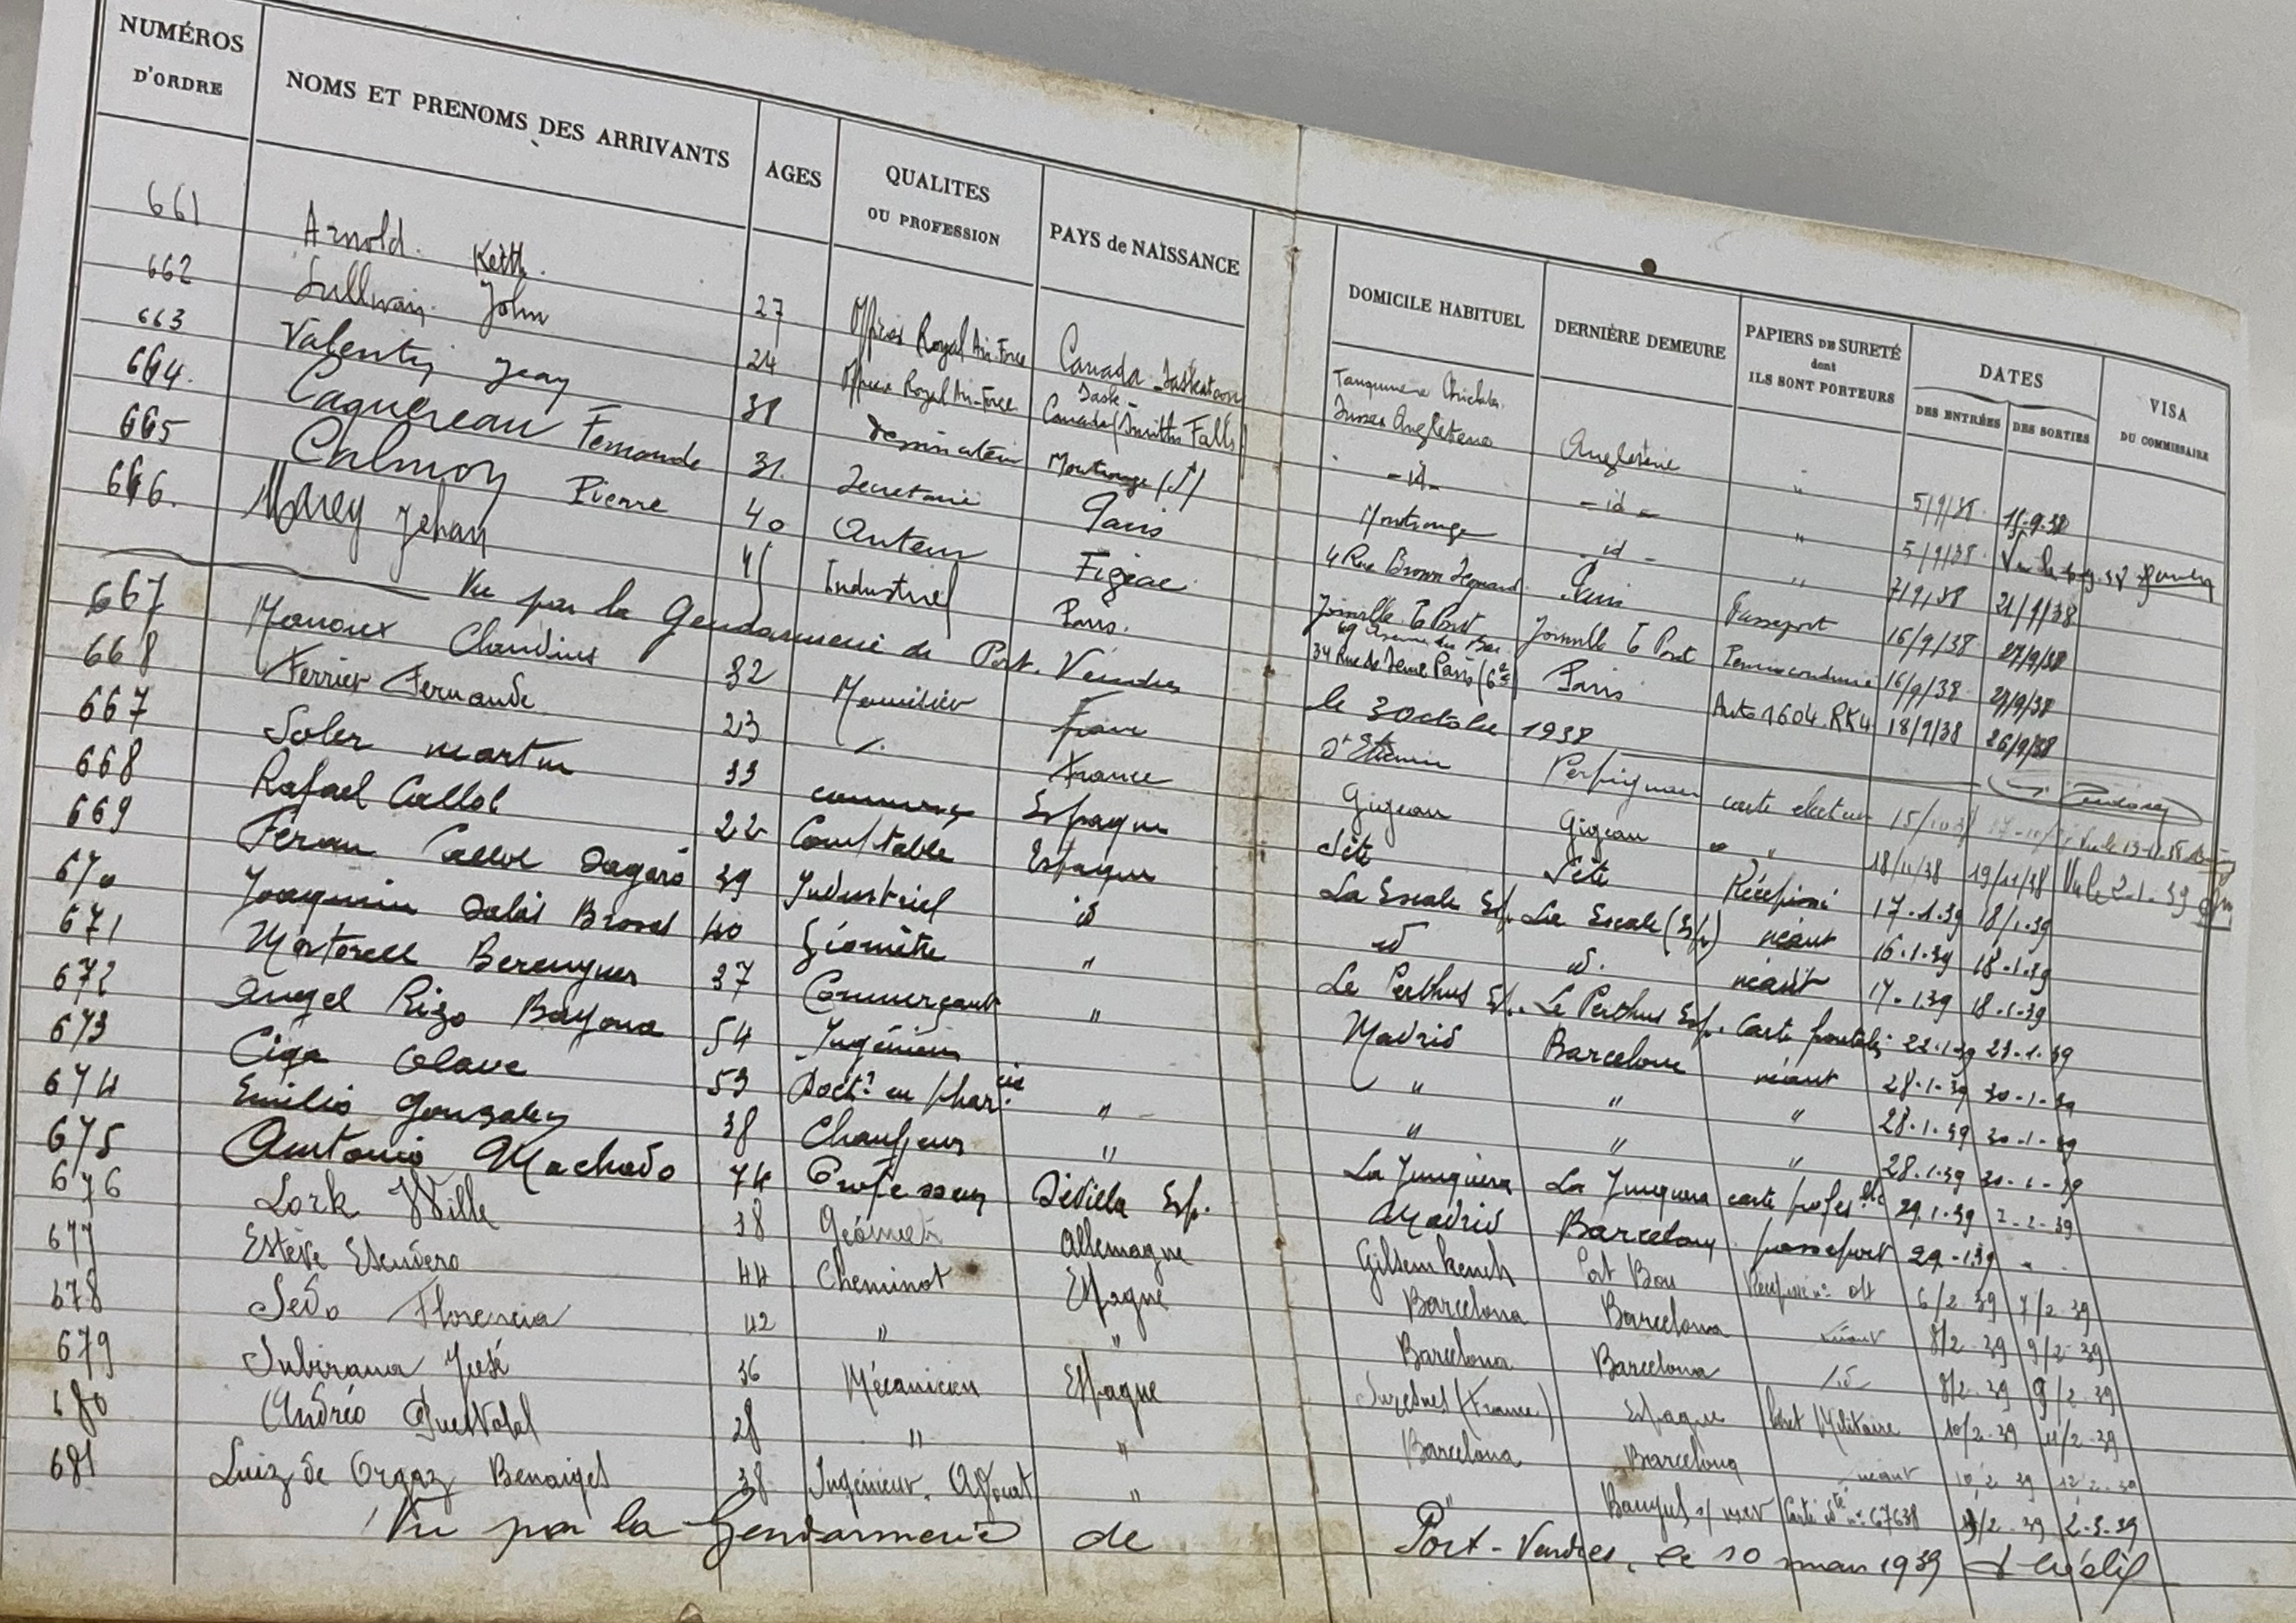 NUMÉROS D'ORDRE NOMS ET PRENOMS DES ARRIVANTS AGES QUALITES OU PROFESSION PAYS de NAISSANCE DOMICILE HABITUEL DERNIÈRE DEMEURE PAPIERS DE SURETÉ dont ILS SONT PORTEURS DATES DES ENTRÉES DES SORTIES VISA DU COMMISSAIRE
661 Arnold. Keith. 27 Officier Royal Air-Force Canada Saskatoon Sask - Angleterre " 5/9/38 15.9.38
662 Sullivan John 24 Officier Royal Air-Force Canada (Smiths Falls) Angleterre - id - - id - " 5/9/38
663 Valentin Jean 38 dessinateur Montrouge (S) Montrouge - id - " 7/9/38 21/9/38
664. Caquereau Fernande 31. Secretaire Paris 4 Rue Paris Passeport 16/9/38 27/9/38
665 Calmon Pierre 40 Auteur Figeac Joinville le Pont Joinville le Pont Permis conduire 16/9/38 27/9/38
666. Marey Jehan 41 Industriel Paris. 34 Rue de Seine Paris (6e) Paris Auto 1604. RK4 18/9/38 26/9/38
Vu par la Gendarmerie de Port. Vendres le 3 octobre 1938
667 Claudius 32 France St Etienne Perpignan carte electeur 15/10 38
668 Ferrier Fernande 23 France Gigean Gigean " " 18/11/38 19/11/38 Vu le 2-1.39
667 Soler martin 33 Espagne Sète Sète Récépissé 17.1.39 18/1.39
668 Rafael Callol 22 Comptable Espagne La Escala Esp. La Escala (Esp) néant 16.1.39 18.1.39
669 Feran Callol Sagaró 39 Industriel id id id. néant 17.1.39 18.1.39
670 Joaquim Salis Brossel 40 Géomètre " Le Perthus Esp. Le Perthus Esp. Carte frontalière 22.1.39 23.1.39
671 Martorell Berenguer 37 Commerçant " Madrid Barcelone néant 28.1.39 30.1.39
672 Angel Rizo Bayona 54 Ingénieur " " " 28.1.39 30.1.39
673 Ciga Olave 53 Doctr en pharcie " " " " 28.1.39 30.1.39
674 Emilio Gonzalez 38 Chauffeur " La Junquera La Junquera carte profeselle 29.1.39 2-2-39
675 Antonio Machado 74 Professeur Sevilla Esp. Madrid Barcelona passeport 29.1.39
676 Lork Wille 38 Géomètre Allemagne Port Bou 6/2.39 7/2.39
677 Estève 44 Cheminot Espagne Barcelona Barcelona néant 8/2.39 9/2.39
678 Sedo Florencia 42 " " Barcelona Barcelona id 8/2.39 9/2.39
679 Subirana José 36 Mécanicien Espagne Suresnes (France) Espagne livret Militaire 10/2.39 11/2.39
680 Andréo 28 " " Barcelona Barcelona néant 10/2 39 12 2.39
681 Luiz de Orgaz Benaiges 38 Ingénieur. " " Banyuls s/ mer Carte idté n° 67638 2.3.39
Vu par la Gendarmerie de Port-Vendres, le 10 mars 1939